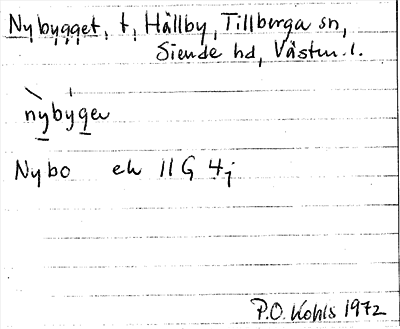 Nybygget, t, Hällby, Tillberga sn,
Siende hd, Västm. l.
nybyge
Nybo ek 11G 4j
P.O. Kohls 1972